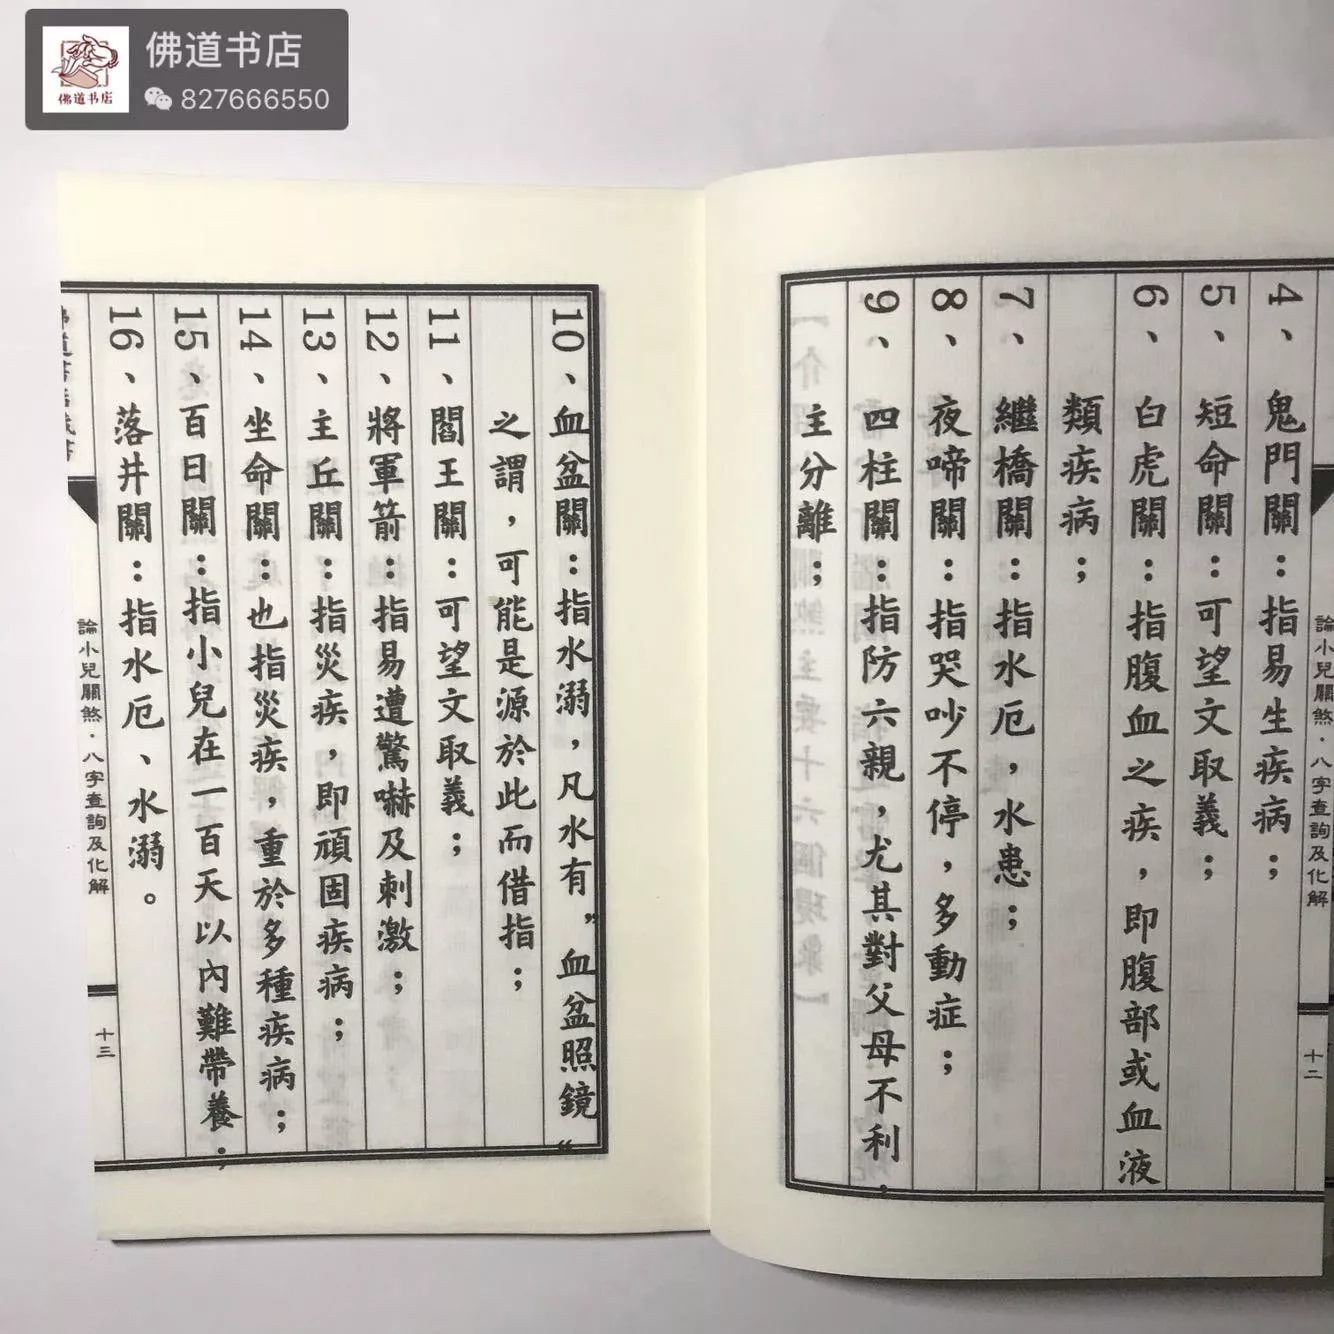 佛道书店
佛道书店
827666550
4、鬼門關：指易生疾病；
5、短命關：可望文取義；
6、白虎關：指腹血之疾，即腹部或血液
類疾病；
7、繼橋關：指水厄，水患；
8、夜啼關：指哭吵不停，多動症；
9、四柱關：指防六親，尤其對父母不利，
主分離；
論小兒關煞·八字查詢及化解
十二
10、血盆關：指水溺，凡水有”血盆照鏡“
之謂，可能是源於此而借指；
11、閻王關：可望文取義；
12、將軍箭：指易遭驚嚇及刺激；
13、主丘關：指災疾，即頑固疾病；
14、坐命關：也指災疾，重於多種疾病；
15、百日關：指小兒在一百天以內難帶養；
16、落井關：指水厄、水溺。
論小兒關煞·八字查詢及化解
十三